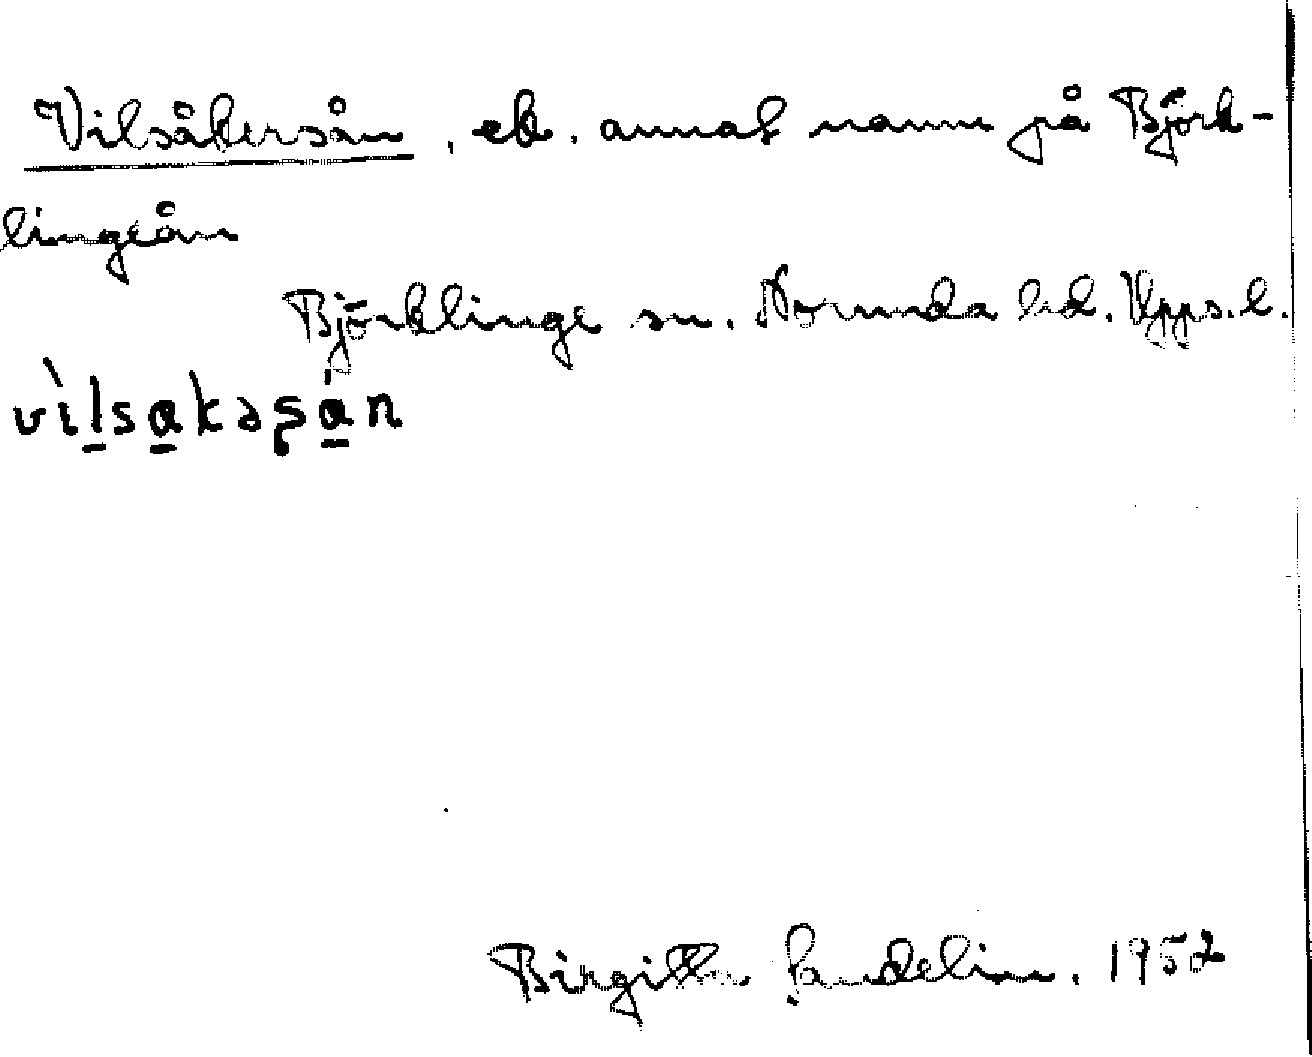 Vilsåkersån, eb. annat namn på Björk-
lingeån
Björklinge sn. Norunda hd. Upps.l.
vìlsakəʂán
Birgitta Sandelin. 1952